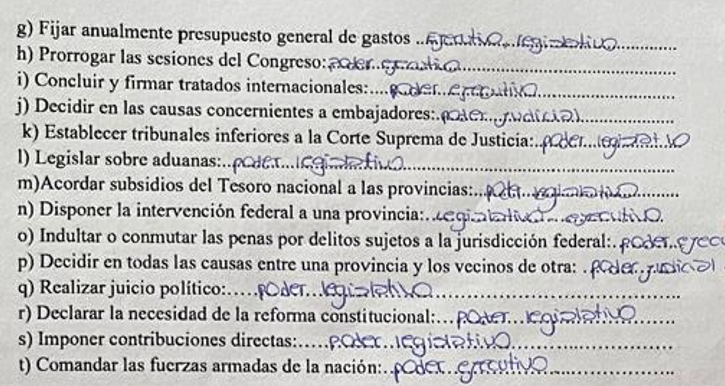 g) Fijar anualmente presupuesto general de gastos ..Ejecutivo..legislativo..............
h) Prorrogar las sesiones del Congreso:poder.ejecutivo......................................
i) Concluir y firmar tratados internacionales:....poder..ejecutivo..........................
j) Decidir en las causas concernientes a embajadores:.poder...judicial...................
k) Establecer tribunales inferiores a la Corte Suprema de Justicia:.poder...legislativo
l) Legislar sobre aduanas:..poder...legislativo..................................................
m)Acordar subsidios del Tesoro nacional a las provincias:..poder..legislativo........
n) Disponer la intervención federal a una provincia:..legislativo....ejecutivo.
o) Indultar o conmutar las penas por delitos sujetos a la jurisdicción federal:.poder..ejecu
p) Decidir en todas las causas entre una provincia y los vecinos de otra: .poder.judicial
q) Realizar juicio político:.....poder...legislativo...............................................
r) Declarar la necesidad de la reforma constitucional:...poder...legislativo........
s) Imponer contribuciones directas:.....poder..legislativo.................................
t) Comandar las fuerzas armadas de la nación:..poder..ejecutivo.........................